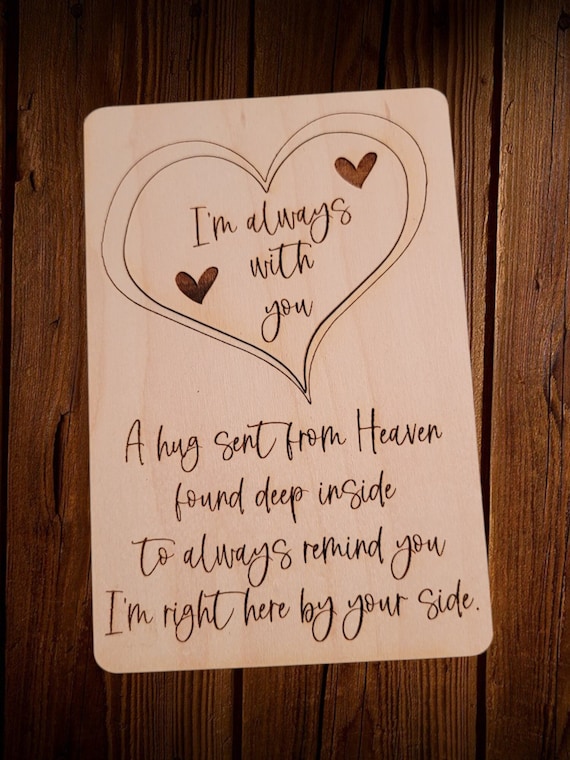 I'm always
with
you
A hug sent from Heaven
found deep inside
to always remind you
I'm right here by your side.